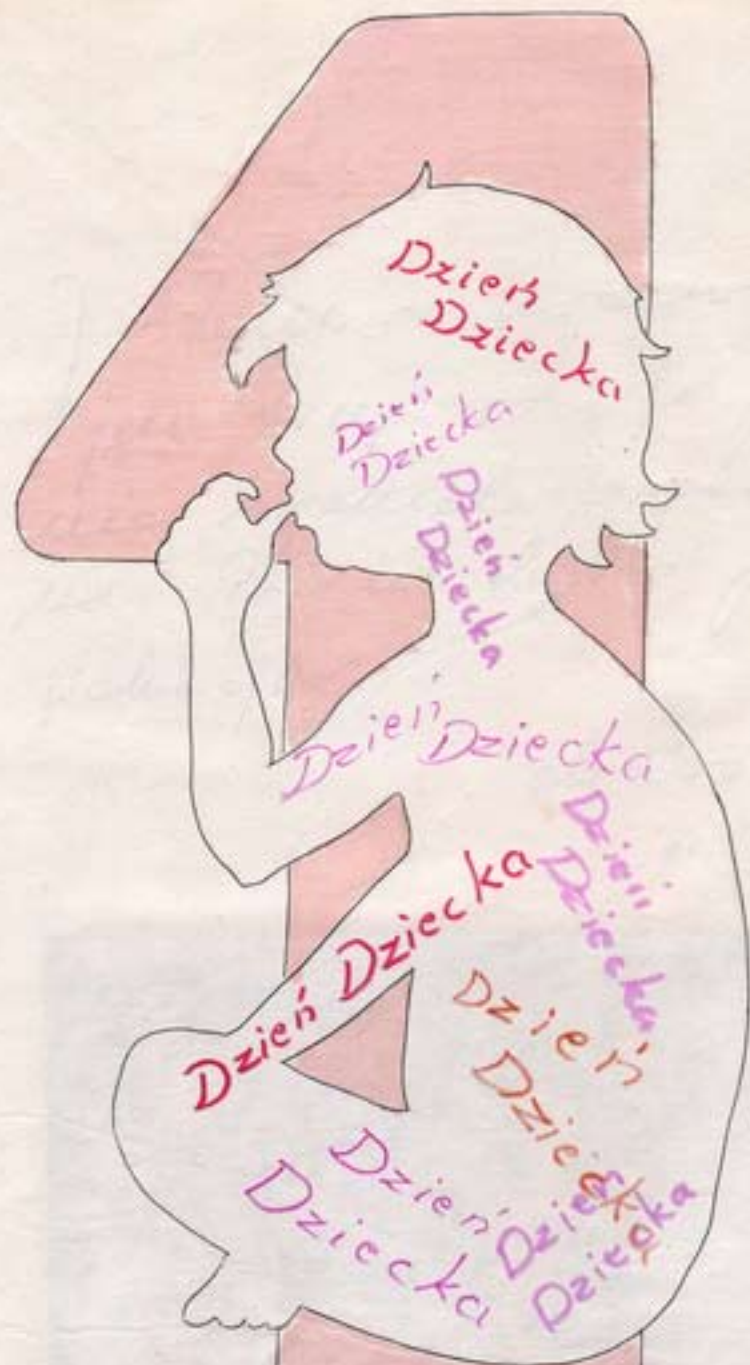 Dzień
Dziecka
Dzień
Dziecka
Dzień
Dziecka
Dzień Dziecka
Dzień
Dziecka
Dzień Dziecka
Dzień
Dziecka
Dzień
Dziecka
Dzień
Dziecka